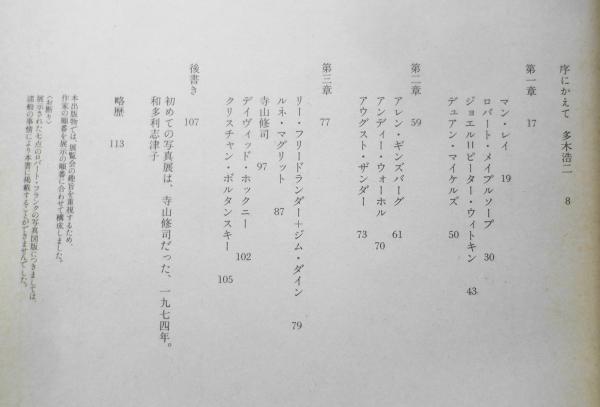 序にかえて 多木浩二 8
第一章 17
マン・レイ 19
ロバート・メイプルソープ 30
ジョエル=ピーター・ウィトキン 43
デュアン・マイケルズ 50
第二章 59
アレン・ギンズバーグ 61
アンディー・ウォーホル 70
アウグスト・ザンダー 73
第三章 77
リー・フリードランダー+ジム・ダイン 79
ルネ・マグリット 87
寺山修司 97
デイヴィッド・ホックニー 102
クリスチャン・ボルタンスキー 105
後書き 107
初めての写真展は、寺山修司だった、一九七四年。
和多利志津子
略歴 113
本出版物では、展覧会の趣旨を重視するため、
作家の順番を展示の順番に合わせて構成しました。
〈お断り〉
展示された七点のロバート・フランクの写真図版につきましては、
諸般の事情により本書に掲載することができませんでした。